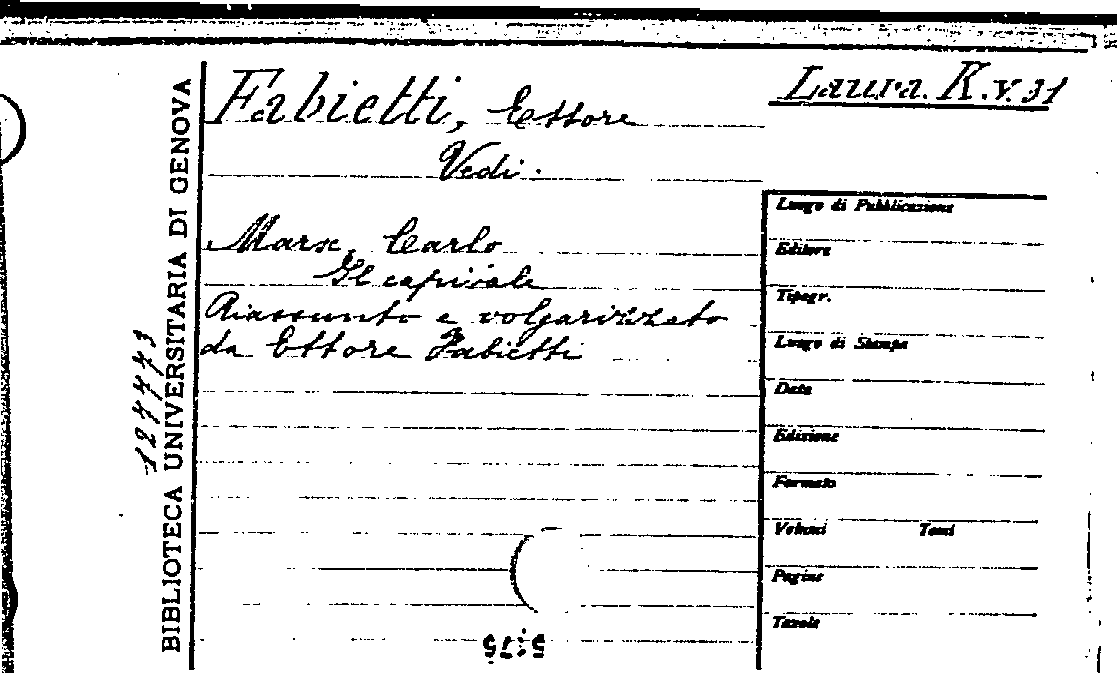 Fabietti, Ettore
Laura. K.v.31
Vedi.
Marx, Carlo
Il capitale
Riassunto e volgarizzato
da Ettore Fabietti
Luogo di Pubblicazione
Editore
Tipogr.
Luogo di Stampa
Data
Edizione
Formato
Volumi Tomi
Pagine
Tavole
BIBLIOTECA UNIVERSITARIA DI GENOVA
127773